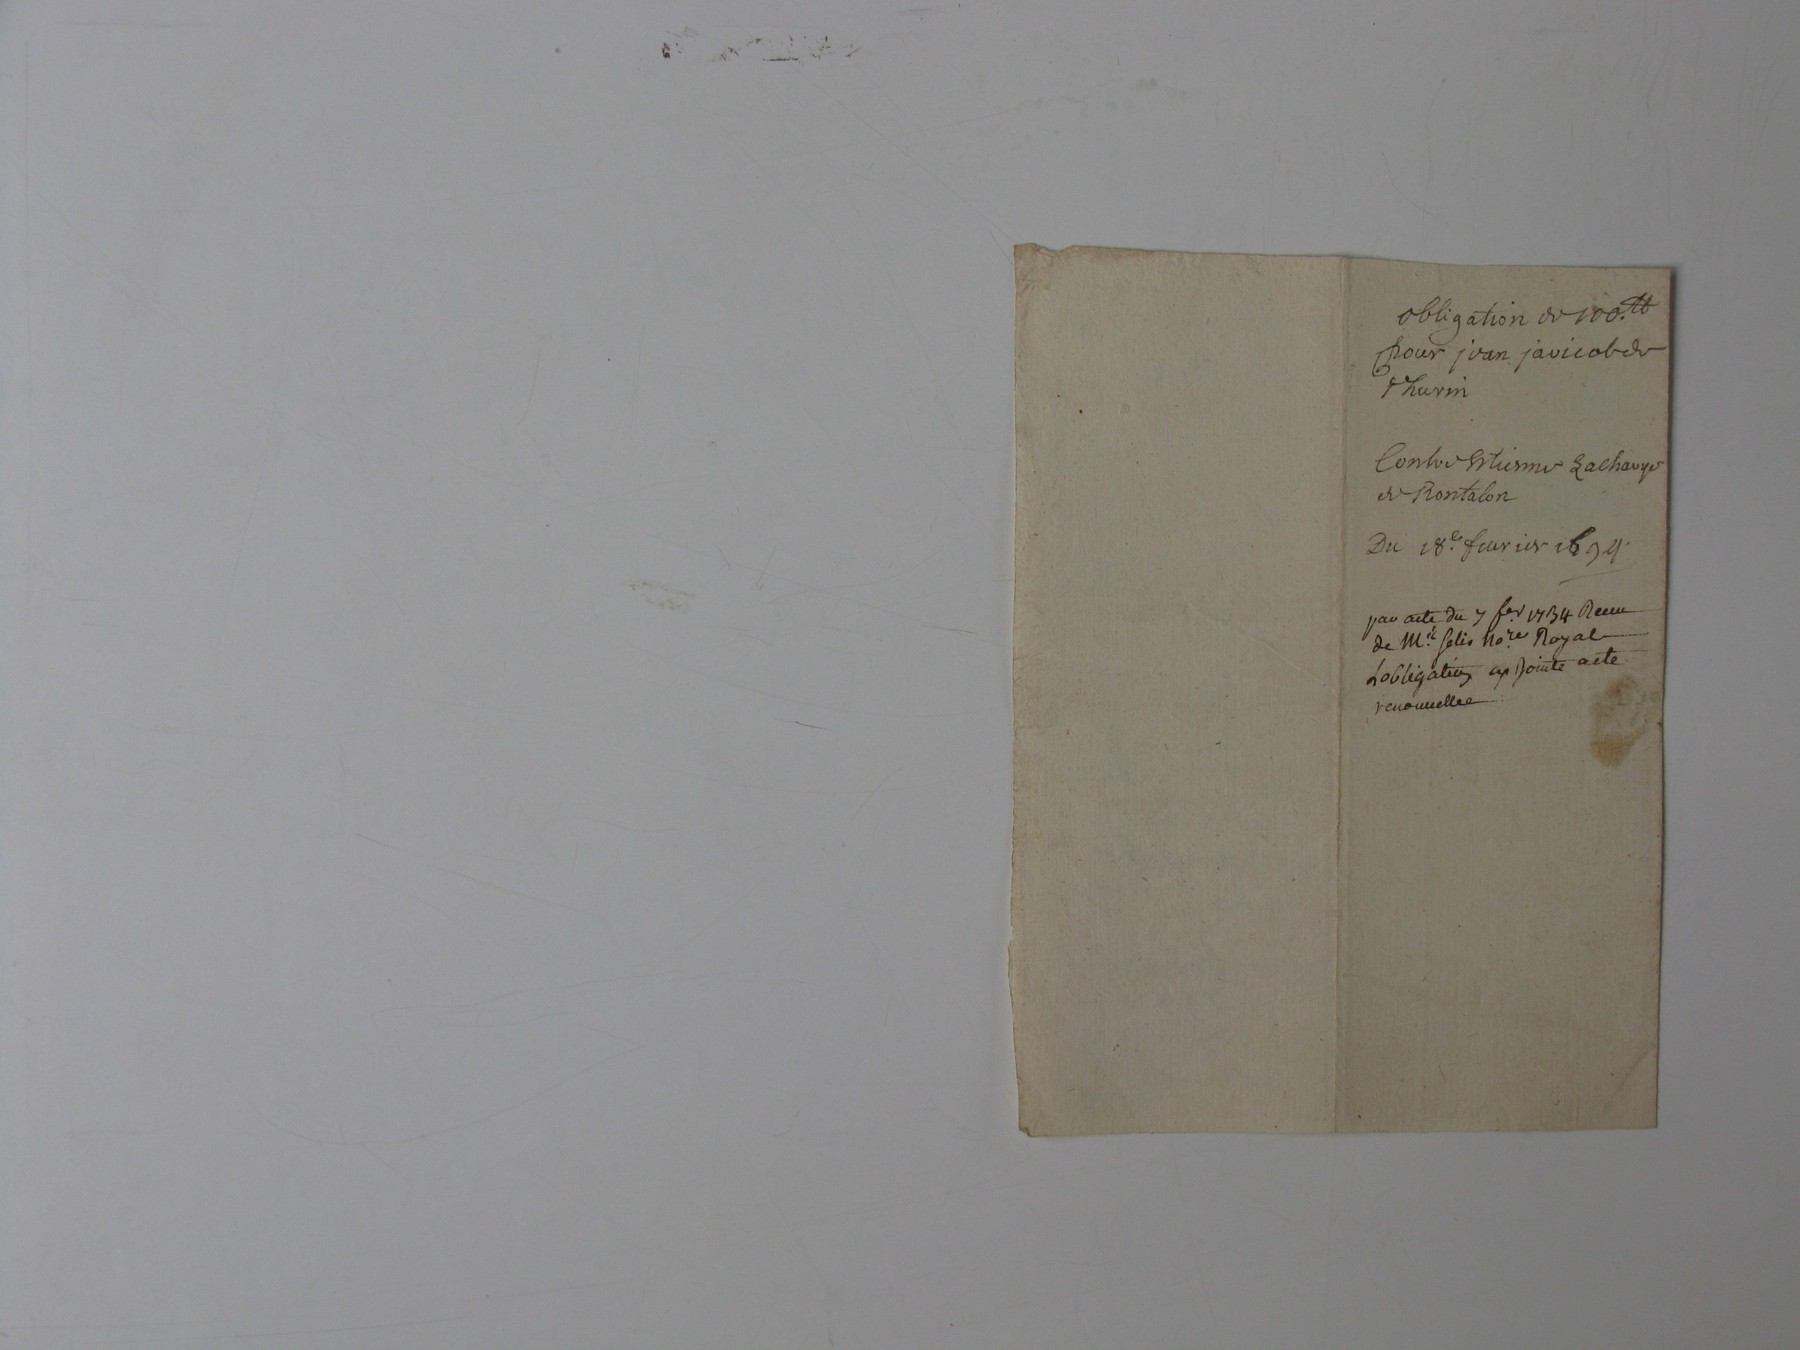 obligation de 100.tt
pour jean javicob de
thurin
Contre Estienne Lacharge
de Rontalon
Du 18.e feurier 1694.
par acte du 7 fer 1734 Receu
de Mr. No.re Royal
L'obligation cy Jointe a ete
renouuellee